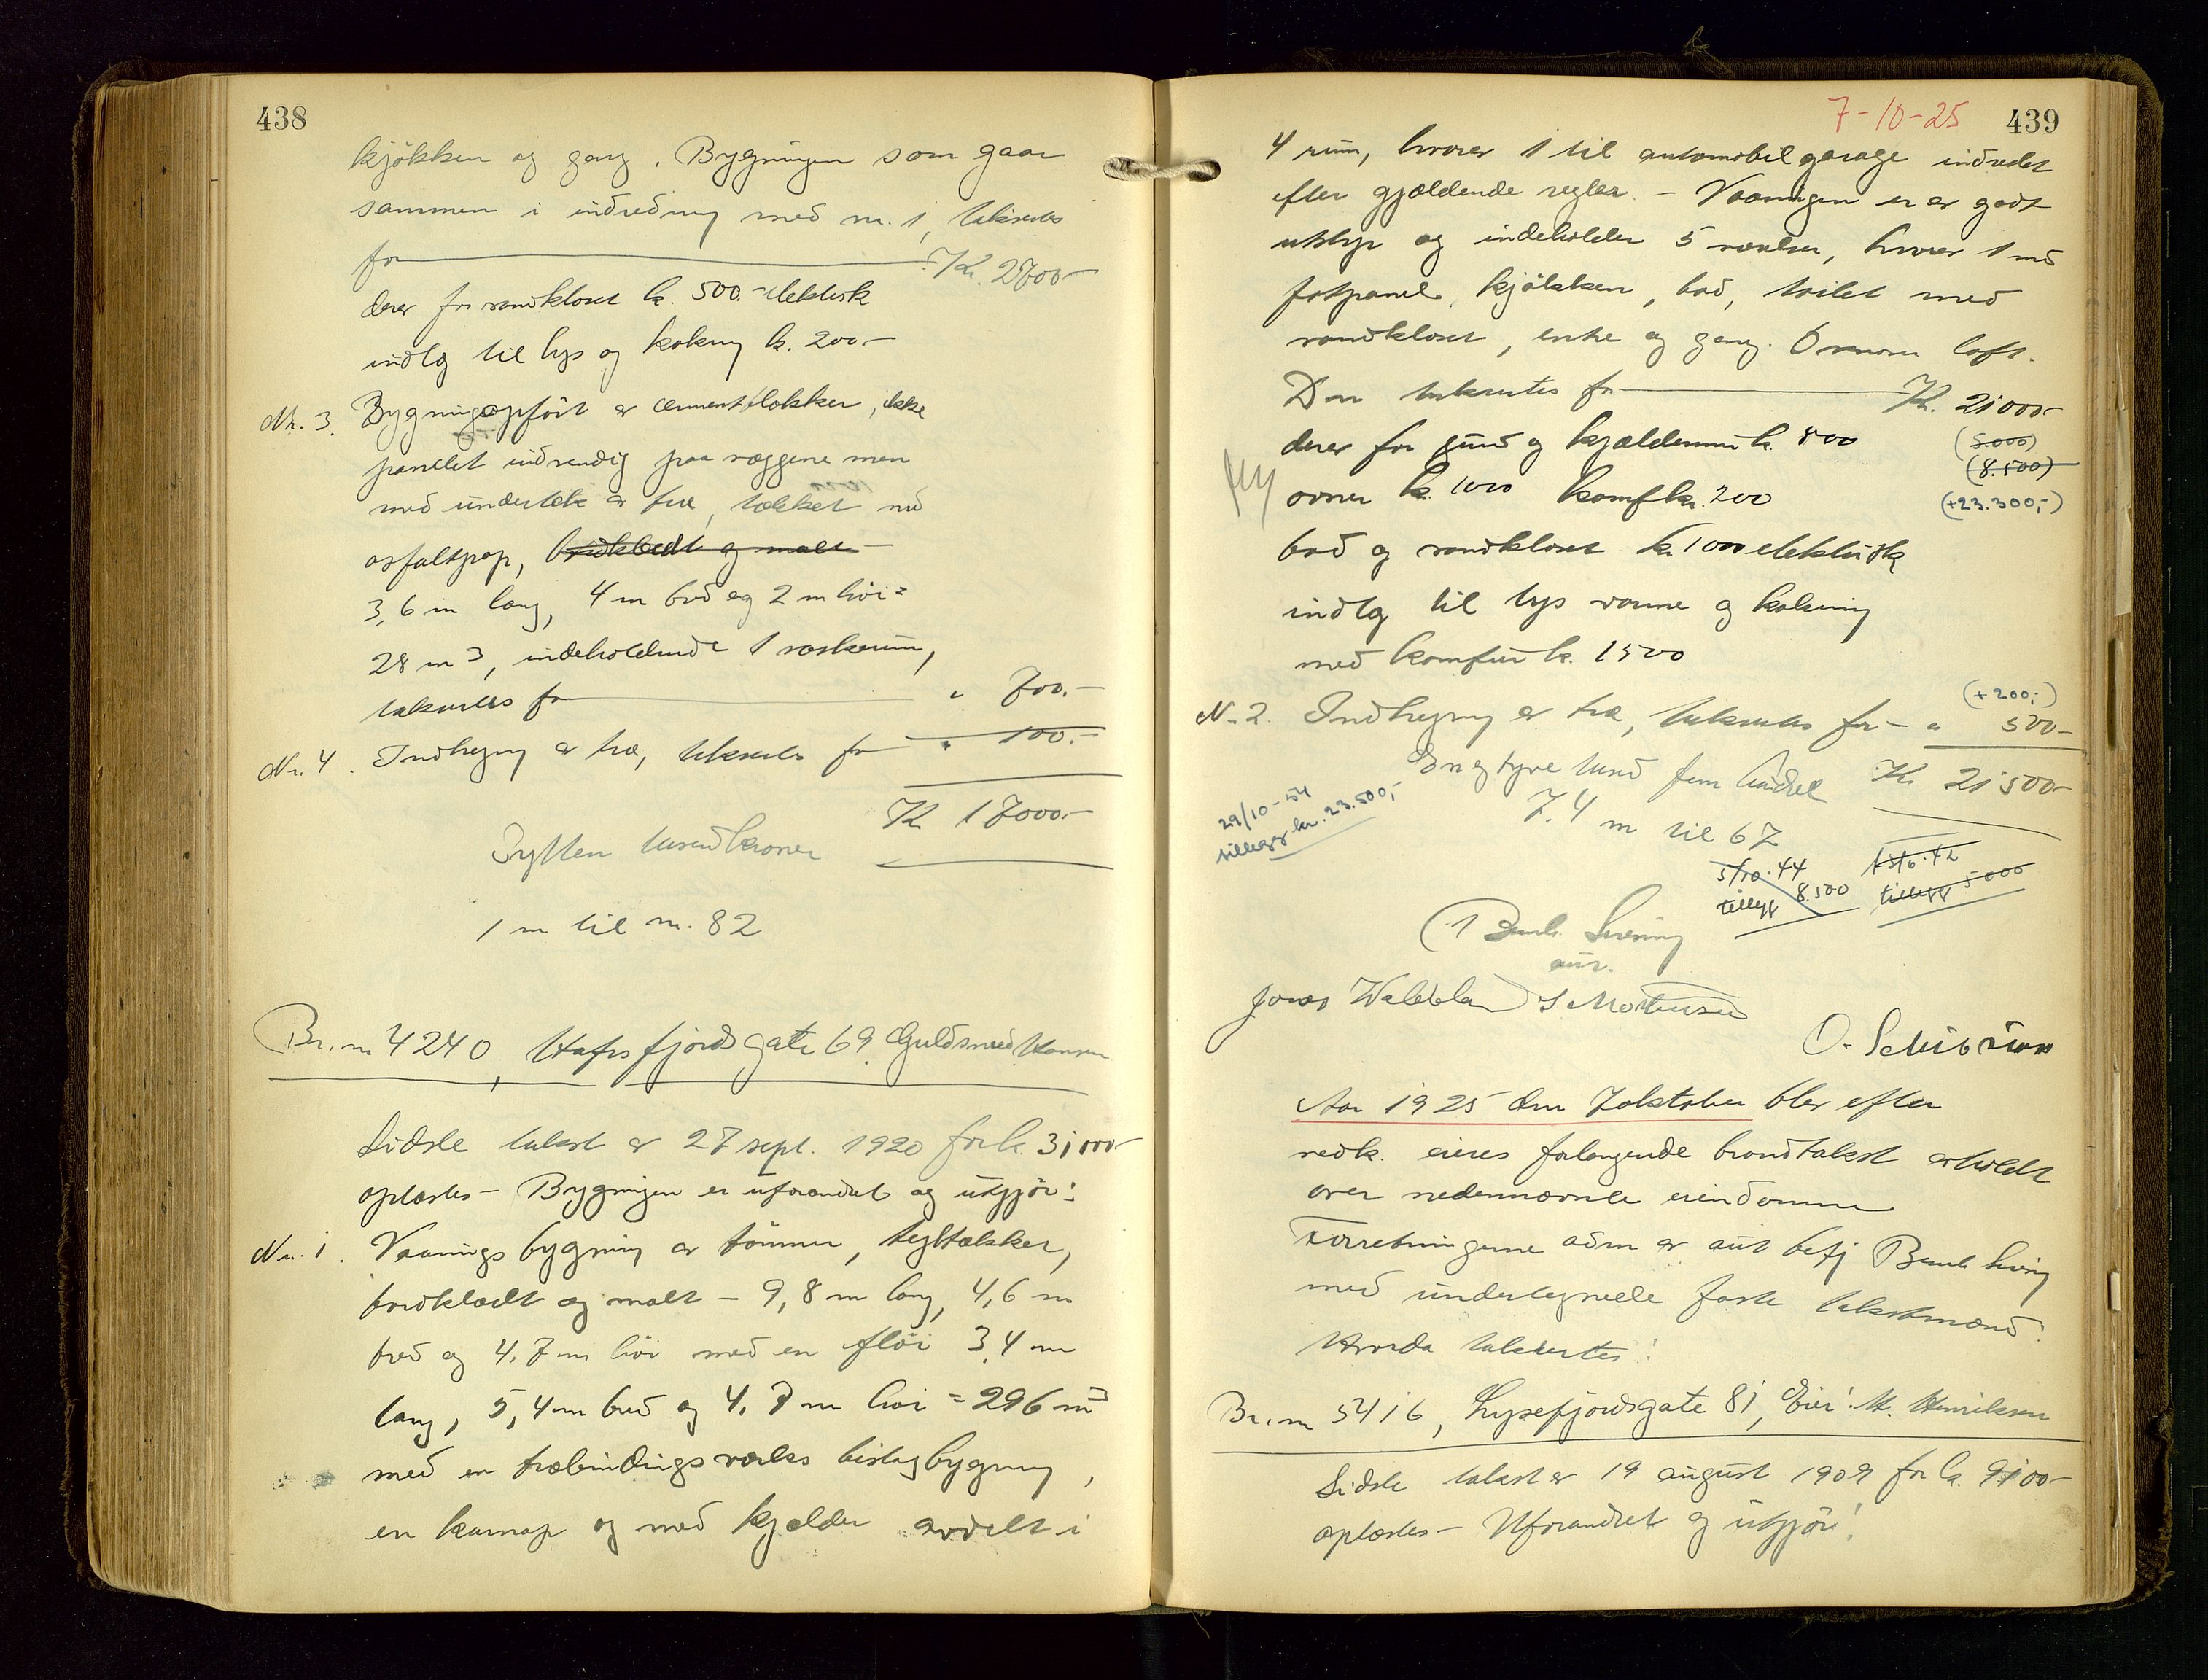 438
kjökken og gang. Bygningen som gaar
sammen i indredning med nr. 1, takseres
for Kr. 2700-
derav for vandkloset kr. 500.- elektrisk
indlg til lys og kokning kr. 200.-
Nr. 3. Bygning opfört av cementblokker, ikke
panelet indvendig paa væggene men
med undertak av træ, tækket med
asfaltpap, bordklædt og malt
3,6 m lang, 4 m bred og 2 m höi =
28 m3, indeholdende 1 vaskerum,
takseres for " 700.-
Nr. 4. Indhegning av træ, takseres for " 100.-
Kr 17000.-
Sytten tusend kroner
1 m til nr. 82
Br. nr 4240, Hafrsfjordsgate 69. Guldsmed Hansen
Sidste takst av 27 sept. 1920 for kr. 31000-
oplæstes - Bygningen er uforandret og utgjör:
Nr. 1. Vaanings bygning av tömmer, tegltækket,
bordklædt og malt - 9,8 m lang, 4,6 m
bred og 4,7 m höi med en flöi 3,4 m
lang, 5,4 m bred og 4,7 m höi = 296 m3
med en træbindingsverks bislagbygning,
en karnap og med kjælder avdelt i
7-10-25 439
4 rum, hvorav 1 til automobilgarage indredet
efter gjældende regler. - Vaaningen er av godt
utstyr og indeholder 5 værelser, hvorav 1 med
fotpanel, kjökken, bad, toilet med
vandkloset, entre og gang. Ovenover loft.
Den takseres for Kr. 21000-
derav for grund og kjældermur kr. 800 (5.000)
(8.500)
ovner kr. 1000 komf kr. 200 (+23.300,-)
bad og vandkloset kr. 1000 elektrisk
indlg til lys varme og kokning
med komfur kr. 1500
(+200,-)
Nr. 2. Indhegning av træ, takseres for - " 500-
En og tyve tusend fem hundrede Kr 21500-
29/10-54
tillegg kr. 23.500,-
7.4 m til 67
5/10.44
tillegg 8.500
tillegg 5000
Bernh. Sivering
aut.
Jonas S Mortensen
O. Schibsrian
Aar 1925 den 7 oktober blev efter
vedk. eieres forlangende brandtakst avholdt
over nedennævnte eiendomme
Forretningerne adm av aut befj Bernh Sivering
med undertegnede faste takstmænd
Hvorda taksertes:
Br. nr 5416, Lysefjordsgate 81, Eier: H. Henriksen
Sidste takst av 19 august 1909 for kr. 9100-
oplæstes - Uforandret og utgjör: